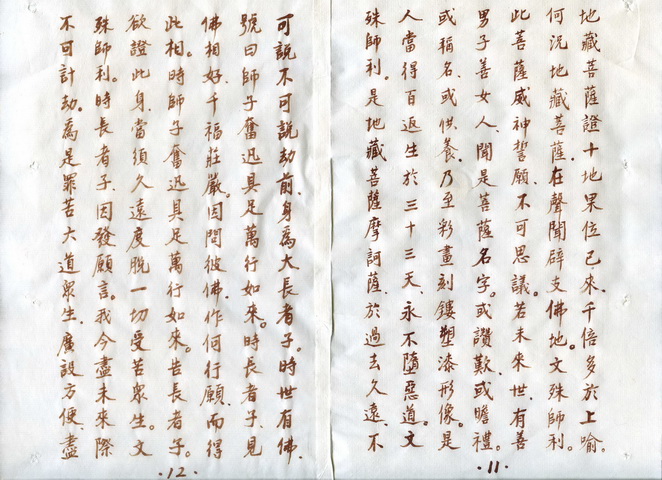 地藏菩薩證十地果位已來。千倍多於上喻。
何況地藏菩薩、在聲聞辟支佛地。文殊師利。
此菩薩威神誓願、不可思議。若未來世、有善
男子善女人、聞是菩薩名字。或讚歎、或瞻禮。
或稱名、或供養、乃至彩畫刻鏤塑漆形像。是
人當得百返生於三十三天、永不墮惡道。文
殊師利。是地藏菩薩摩訶薩、於過去久遠、不
·11·
可說不可說劫前、身為大長者子。時世有佛、
號曰師子奮迅具足萬行如來。時長者子、見
佛相好、千福莊嚴。因問彼佛、作何行願、而得
此相。時師子奮迅具足萬行如來。告長者子。
欲證此身、當須久遠度脫一切受苦眾生。文
殊師利。時長者子、因發願言。我今盡未來際
不可計劫。為是罪苦六道眾生、廣設方便、盡
·12·